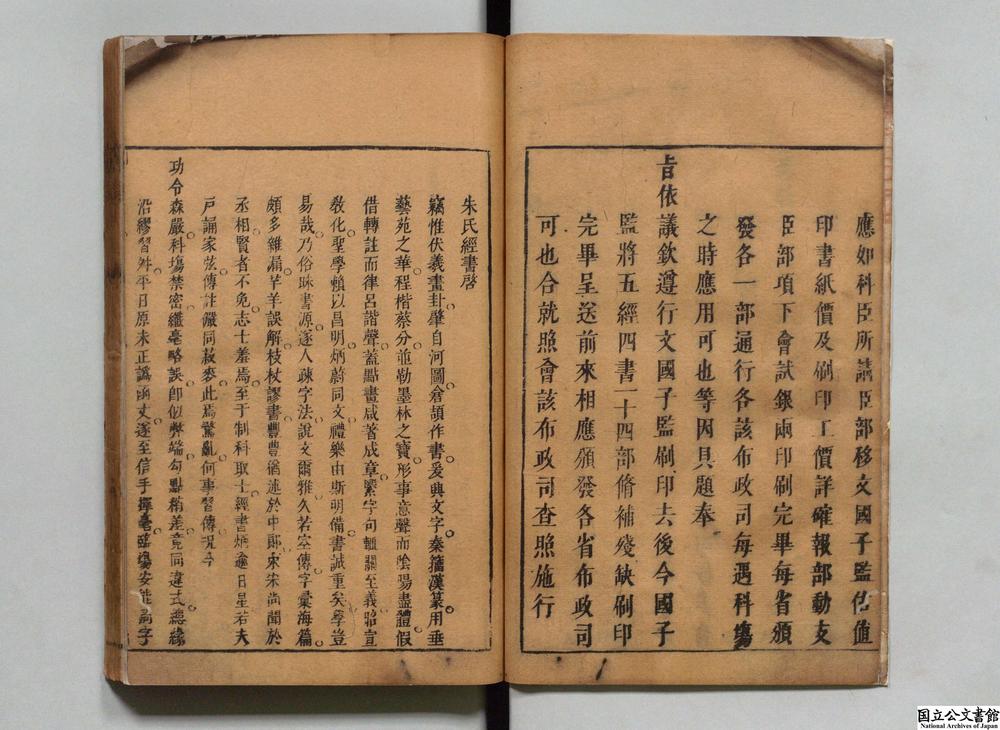 應如科臣所議臣部移文國子監估值
印書紙價及刷印工價詳確報部動支
臣部項下會試銀兩印刷完畢每省頒
發各一部通行各該布政司每遇科場
之時應用可也等因具題奉
旨依議欽遵行文國子監刷印去後今國子
監將五經四書二十四部脩補殘缺刷印
完畢呈送前來相應頒發各省布政司
可也合就照會該布政司查照施行
朱氏經書啓
竊惟伏羲畫卦肇自河圖倉頡作書爰典文字秦籀漢篆用垂
藝苑之華程楷蔡分並勒墨林之寶形事意聲而陰陽盡體假
借轉註而律呂諧聲蓋點畫咸著成章繁字句軆關至義昭宣
敎化聖學賴以昌明炳蔚同文禮樂由斯明備書誠重矣學豈
易哉乃俗眛書源遂人疎字法說文爾雅久若空傳字彙海篇
頗多雜漏芋羊誤解枝杖謬書豐豊猶述於中郞宋朱尚聞於
丞相賢者不免志士羞焉至于制科取士經書炳逾日星若夫
戸誦家弦傳註儼同菽麥此焉驚亂何事習傳况今
功令森嚴科塲禁密纖毫略誤卽似弊端句點稍差竟同違式總緣
沿繆習舛平日原未正譌函丈遂至信手揮毫臨塲安能嗣字
国立公文書館
National Archives of Japan